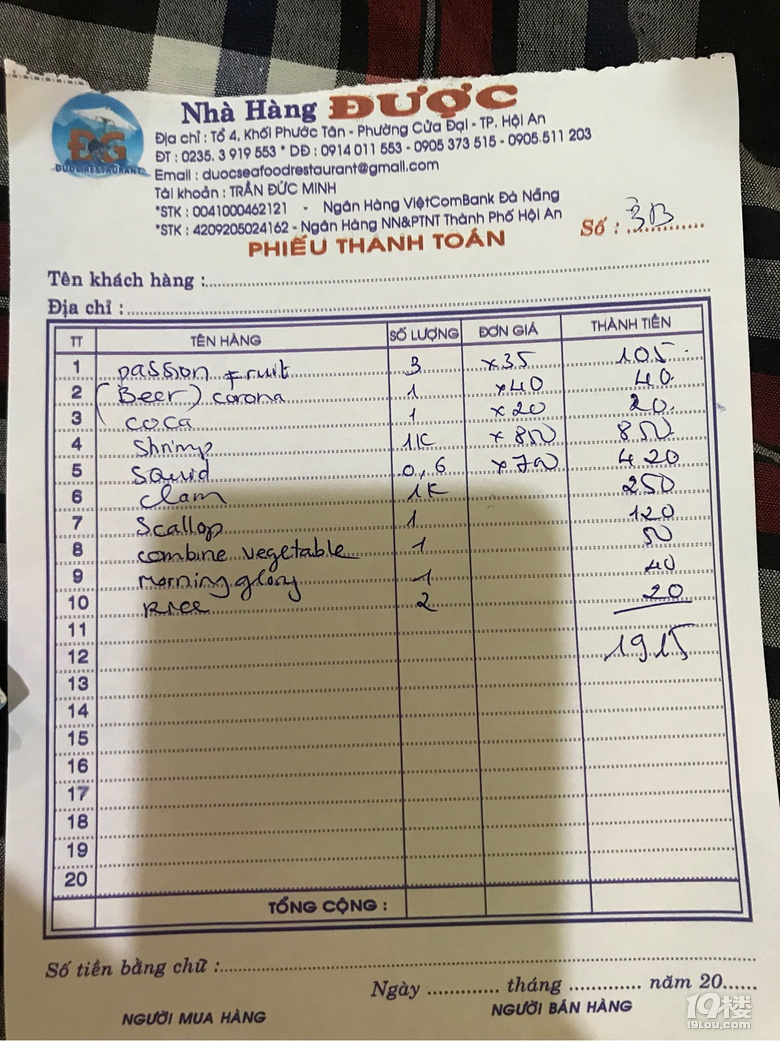 Nhà Hàng ĐƯỢC
ĐG
DUOC RESTAURANT
Địa chỉ : Tổ 4, Khối Phước Tân - Phường Cửa Đại - TP. Hội An
ĐT : 0235. 3 919 553 * DĐ : 0914 011 553 - 0905 373 515 - 0905.511 203
Email : duocseafoodrestaurant@gmail.com
Tài khoản : TRẦN ĐỨC MINH
*STK : 0041000462121 - Ngân Hàng ViệtComBank Đà Nẵng
*STK : 4209205024162 - Ngân Hàng NN&PTNT Thành Phố Hội An
PHIẾU THANH TOÁN
Số : 3B
Tên khách hàng :
Địa chỉ :
TT TÊN HÀNG SỐ LƯỢNG ĐƠN GIÁ THÀNH TIỀN
1 passion fruit 3 x35 105
2 (Beer) corona 1 x40 40
3 coca 1 x20 20
4 Shrimp 1K x850 850
5 Squid 0,6 x700 420
6 clam 1K 250
7 Scallop 1 120
8 combine vegetable 1 50
9 morning glory 1 40
10 Rice 2 20
11
12 1915
13
14
15
16
17
18
19
20
TỔNG CỘNG :
Số tiền bằng chữ :
Ngày ............ tháng ............ năm 20......
NGƯỜI MUA HÀNG NGƯỜI BÁN HÀNG
19楼
19lou.com